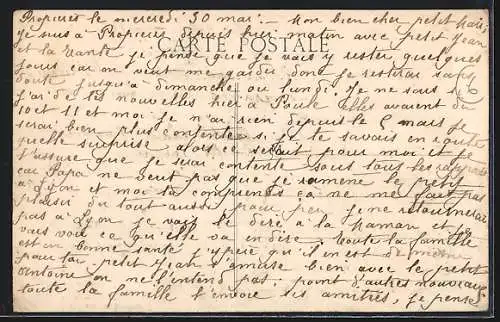 Propières le mercredi 30 mai. Mon bien cher petit
je suis à Propières depuis hier matin avec petit Jean
CARTE POSTALE
et la tante je pense que je vais y rester quelques
jours car on veut me garder donc je resterai sans
doute jusqu'à dimanche ou lundi. Je ne sais si
j'ai de tes nouvelles hier à Paule Elles avaient du
10 et 11 et moi je n'ai rien depuis le 6 mars je
serai bien plus contente si je te savais en route
quelle surprise alors ce serait pour moi et je
t'assure que je serai contente sous tous les rapports
car Papa ne veut pas que je ramène le petit
à Lyon et moi tu comprends ça ne me fait pas
plaisir du tout aussi pour peu Je ne retournerai
pas à Lyon je vais le dire à la Maman et je
vais voir ce qu'elle va en dire. Toute la famille
est en bonne santé j'espère qu'il en est de même
pour toi petit Jean s'amuse bien avec le petit
Antoine on ne l'entend pas. point d'autres nouveaux
toute la famille t'envoie ses amitiés, je pense